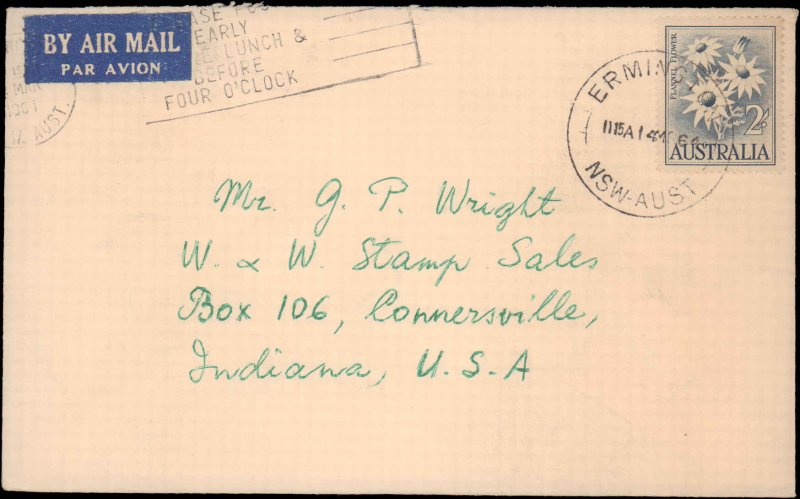 BY AIR MAIL
PAR AVION
EARLY
LUNCH &
BEFORE
FOUR O'CLOCK
AUST.
NSW-AUST
FLANNEL FLOWER
2/-
AUSTRALIA
Mr. G. P. Wright
W. & W. Stamp Sales
Box 106, Connersville,
Indiana, U. S. A